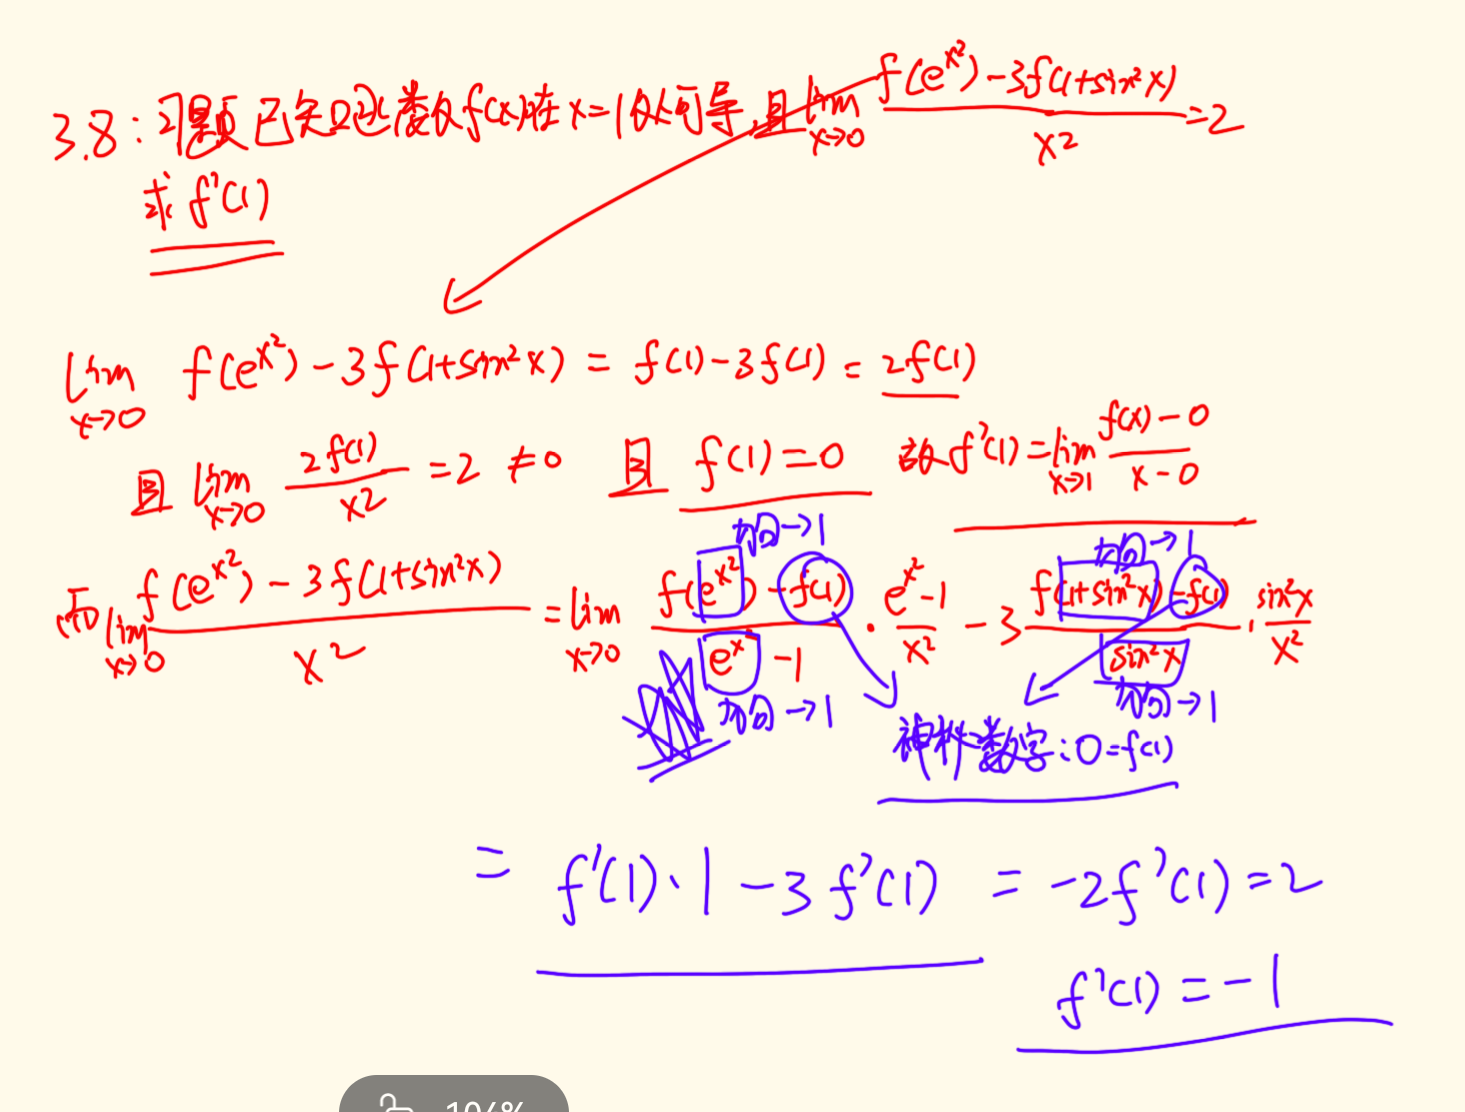 3.8: 习题 已知函数f(x)在x=1处可导,且 lim x→0 f(e^x²)-3f(1+sin²x) / x² =2
求 f'(1)
lim x→0 f(e^x²)-3f(1+sin²x) = f(1)-3f(1) = 2f(1)
且 lim x→0 2f(1) / x² =2 ≠0 且 f(1)=0 故f'(1)=lim x→1 f(x)-0 / x-0
而 lim x→0 f(e^x²)-3f(1+sin²x) / x² = lim x→0 f(e^x²)-f(1) / e^x-1 · e^x²-1 / x² -3 f(1+sin²x)-f(1) / sin²x · sin²x / x²
→1
→1
→1
→1
神秘数字:0=f(1)
= f'(1)·1-3f'(1) = -2f'(1)=2
f'(1)=-1
104%